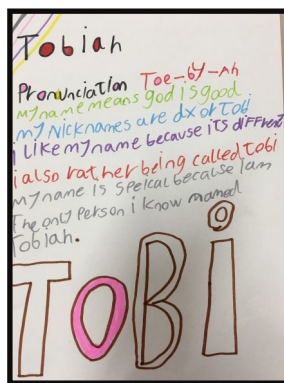 Tobiah
Pronunciation Toe-by-Ah
my name means god is good
my Nicknames are dx or Tobi
i Like my name because its different
i also rather being called tobi
my name is speical because I am
the only person i know named
Tobiah.
TOBi